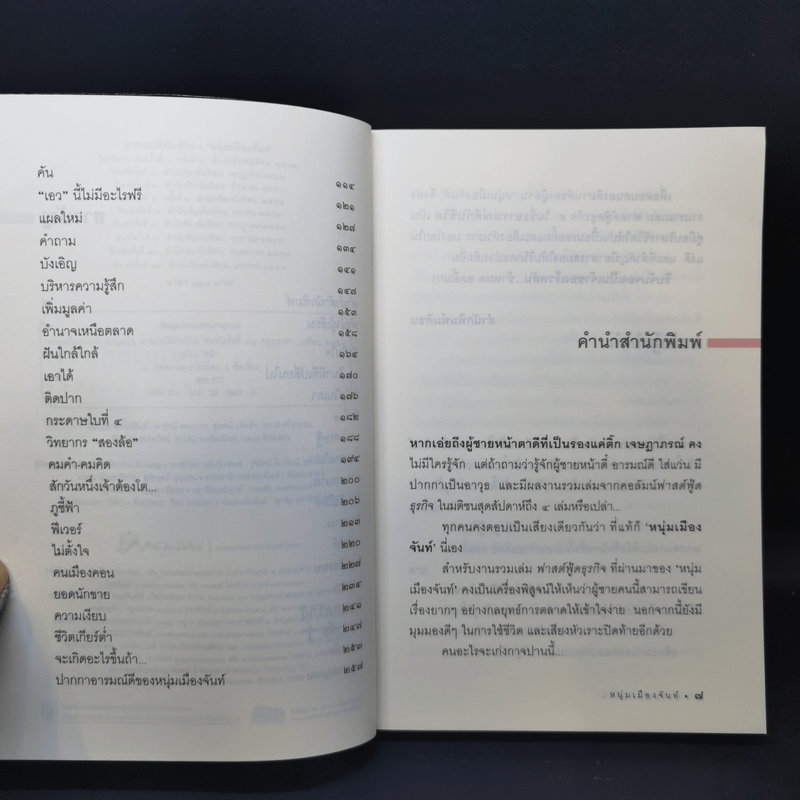 คัน ๑๑๔
“เอว” นี้ไม่มีอะไรฟรี ๑๒๑
แผลใหม่ ๑๒๗
คำถาม ๑๓๔
บังเอิญ ๑๔๑
บริหารความรู้สึก ๑๔๗
เพิ่มมูลค่า ๑๕๓
อำนาจเหนือตลาด ๑๕๘
ฝันใกล้ใกล้ ๑๖๔
เอาได้ ๑๗๐
ติดปาก ๑๗๖
กระดาษใบที่ ๔ ๑๘๒
วิทยากร “สองล้อ” ๑๘๘
คมคำ-คมคิด ๑๙๔
สักวันหนึ่งเจ้าต้องโต... ๒๐๐
ภูชี้ฟ้า ๒๐๖
ฟีเวอร์ ๒๑๓
ไม่ตั้งใจ ๒๒๐
คนเมืองคอน ๒๒๗
ยอดนักขาย ๒๓๔
ความเงียบ ๒๔๑
ชีวิตเกียร์ต่ำ ๒๔๗
จะเกิดอะไรขึ้นถ้า... ๒๕๓
ปากกาอารมณ์ดีของหนุ่มเมืองจันท์ ๒๕๗
คำนำสำนักพิมพ์
หากเอ่ยถึงผู้ชายหน้าตาดีที่เป็นรองแค่ติ๊ก เจษฎาภรณ์ คง
ไม่มีใครรู้จัก แต่ถ้าถามว่ารู้จักผู้ชายหน้าตี๋ อารมณ์ดี ใส่แว่น มี
ปากกาเป็นอาวุธ และมีผลงานรวมเล่มจากคอลัมน์ฟาสต์ฟู้ด
ธุรกิจ ในมติชนสุดสัปดาห์ถึง ๔ เล่มหรือเปล่า...
ทุกคนคงตอบเป็นเสียงเดียวกันว่า ที่แท้ก็ ‘หนุ่มเมือง
จันท์’ นี่เอง
สำหรับงานรวมเล่ม ฟาสต์ฟู้ดธุรกิจ ที่ผ่านมาของ ‘หนุ่ม
เมืองจันท์’ คงเป็นเครื่องพิสูจน์ให้เห็นว่าผู้ชายคนนี้สามารถเขียน
เรื่องยากๆ อย่างกลยุทธ์การตลาดให้เข้าใจง่าย นอกจากนี้ยังมี
มุมมองดีๆ ในการใช้ชีวิต และเสียงหัวเราะปิดท้ายอีกด้วย
คนอะไรจะเก่งกาจปานนี้...
หนุ่มเมืองจันท์ • ๗